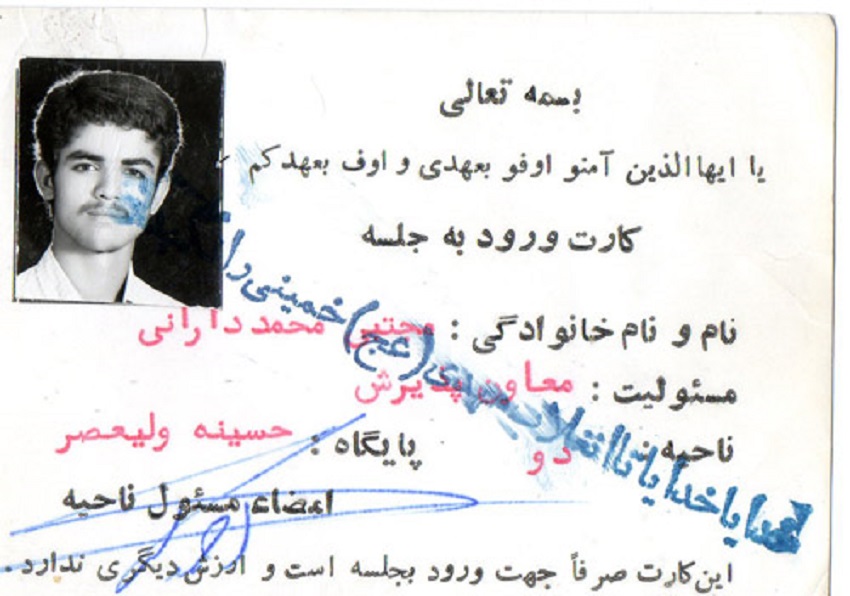 بسمه تعالی
یا ایهاالذین آمنو اوفو بعهدی و اوف بعهدکم
کارت ورود به جلسه
نام و نام خانوادگی : مجتبی محمددارانی
مسئولیت : معاون پذیرش
ناحیه : دو
پایگاه : حسینه ولیعصر
امضاء مسئول ناحیه
این‌کارت صرفاً جهت ورود بجلسه است و ارزش دیگری ندارد .
خدایا خدایا تا انقلاب مهدی (عج) خمینی را